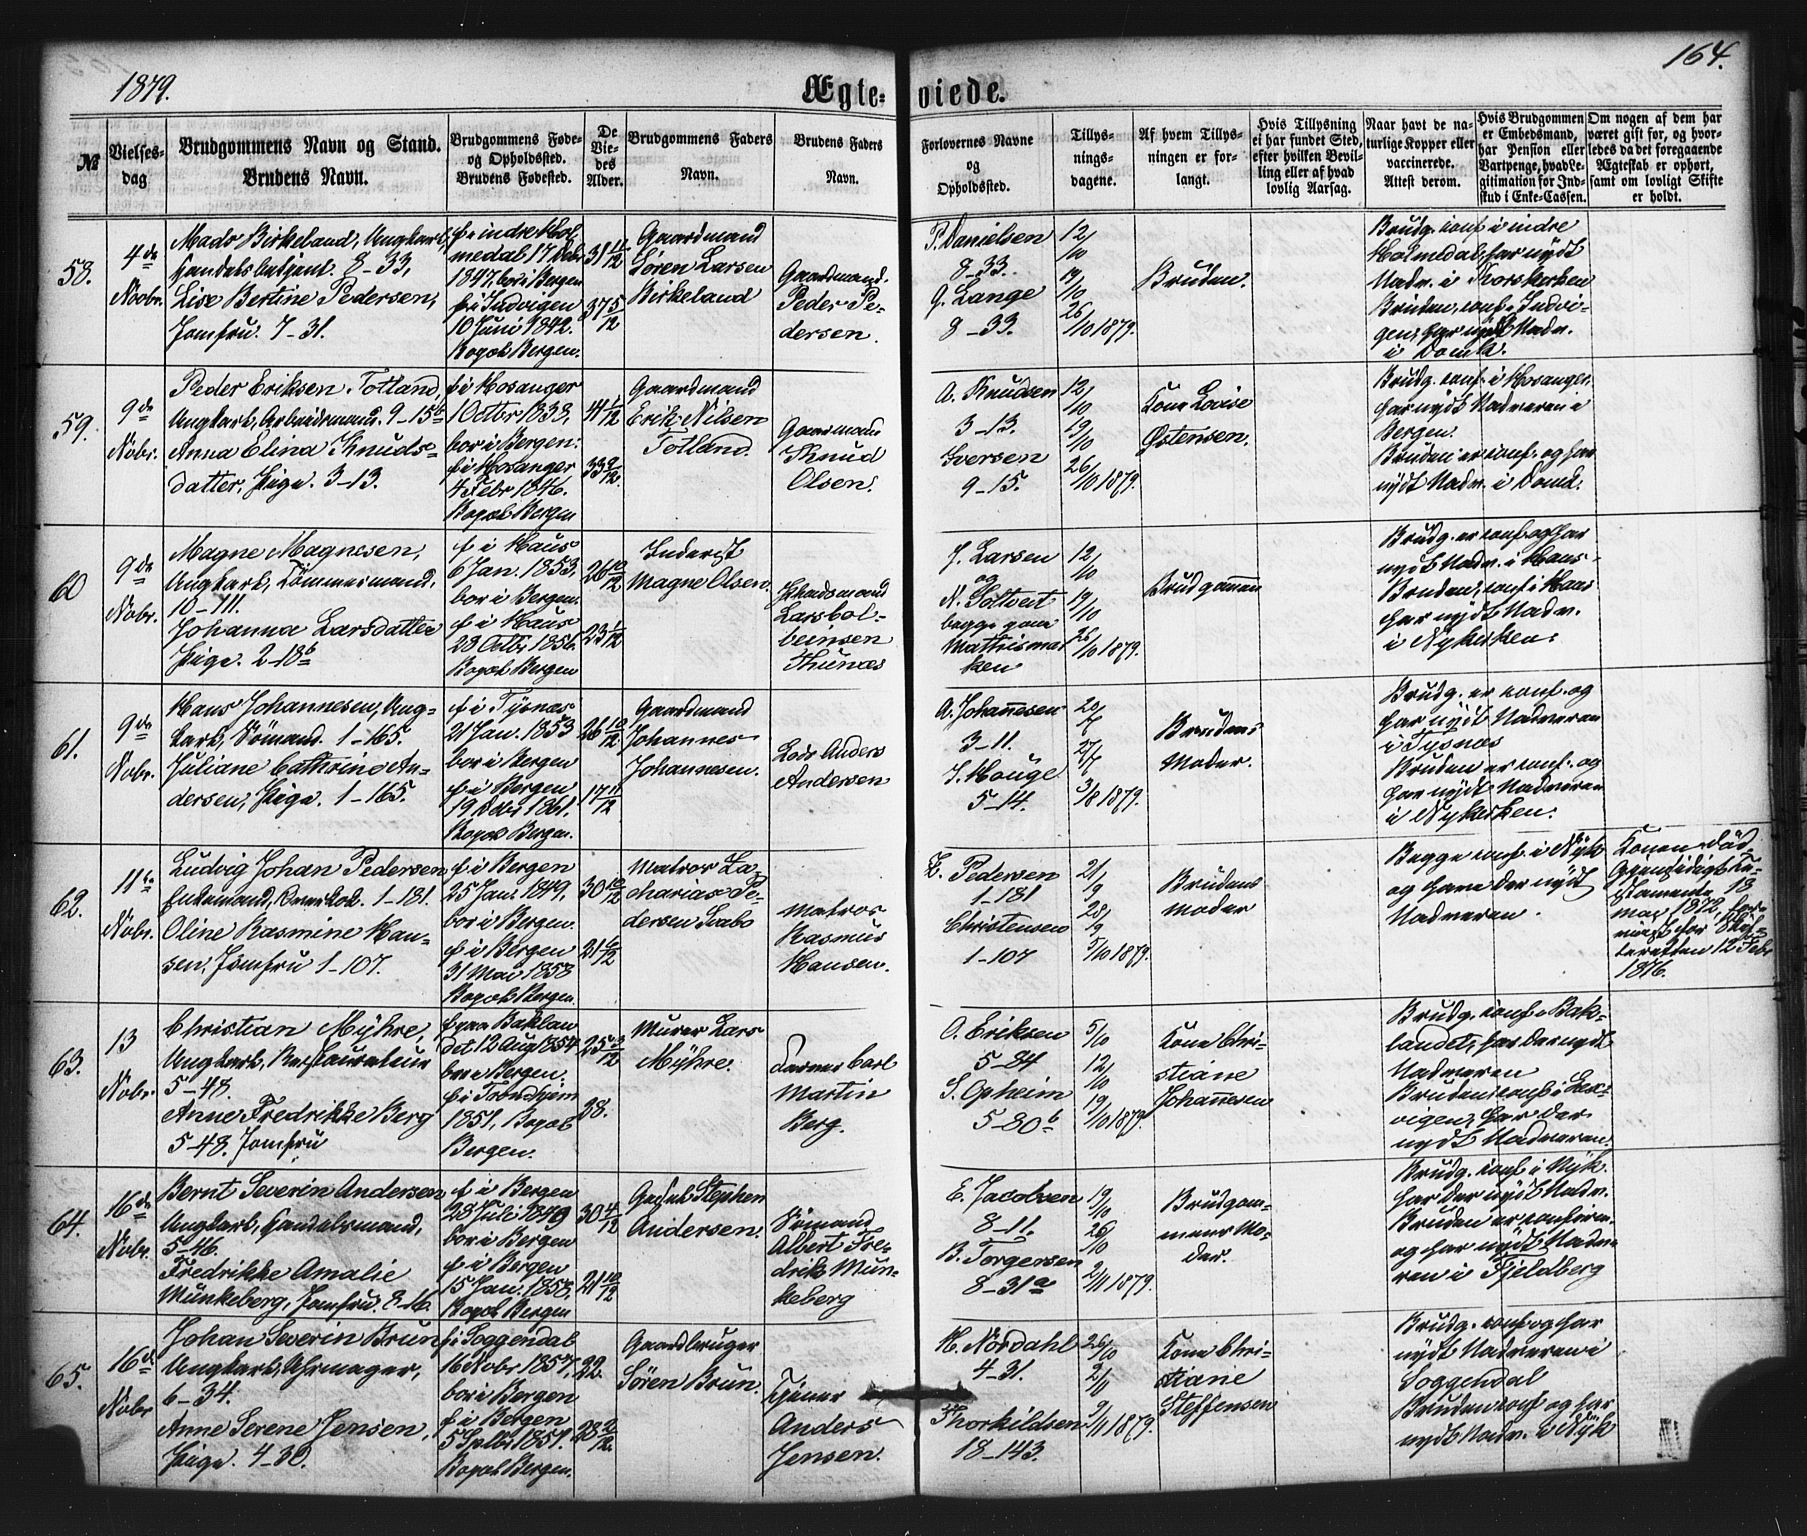 1879.
Ægte=
viede.
164.
№
Vielses-
dag
Brudgommens Navn og Stand.
Brudens Navn.
Brudgommens Føde-
og Opholdssted.
Brudens Fødested.
De
Vie-
des
Alder.
Brudgommens Faders
Navn.
Brudens Faders
Navn.
Forlovernes Navne
og
Opholdssted.
Tillys-
nings-
dagene.
Af hvem Tillys-
ningen er for-
langt.
Hvis Tillysning
ei har fundet Sted,
efter hvilken Bevil-
ling eller af hvad
lovlig Aarsag.
Naar havt de na-
turlige Kopper eller
vaccinerede.
Attest derom.
Hvis Brudgommen
er Embedsmand,
har Pension eller
Vartpenge, hvad Le-
gitimation for Ind-
skud i Enke-Cassen.
Om nogen af dem har
været gift før, og hvor-
ledes da det foregaaende
Ægteskab er ophørt,
samt om lovligt Skifte
er holdt.
58.
4de
Novbr.
Mads Birkeland, Ungkarl,
Handelsbetjent. 8-33,
Lise Bertine Pedersen,
Jomfru. 7-31.
f. i indre Hol-
medal 17 Debr
1847, bor i Bergen
f. i Indvigen
10 Juni 1842.
Bopæl Bergen.
31 11/12
37 5/12
Gaardmand
Søren Larsen
Birkeland
Gaardmand
Peder Pe-
dersen.
P. Danielsen
8-33.
G. Lange
8-33.
12/10
19/10
26/10 1879.
Bruden.
Brudg. conf. i indre
Holmedal, har nydt
Nadv. i Korskirken
Bruden conf. i Indvi-
gen, har nydt Nadv.
i Domk.
59.
9de
Nobr.
Peder Eriksen Totland,
Ungkarl, Arbeidsmand. 9-15b
Anna Elina Knuds-
datter, Pige. 3-13.
f. i Hosanger
1 Octbr 1838,
bor i Bergen.
f. i Hosanger
4 Febr 1846.
Bopæl Bergen
41 1/12
33 9/12.
Gaardmand
Erik Nilsen
Totland.
Gaardmand
Knud
Olsen.
A. Knudsen
3-13.
Iversen
9-15.
12/10
19/10
26/10 1879.
Kone Lovise
Østensen.
Brudg. conf. i Hosanger
har nydt Nadveren i
Bergen.
Bruden er conf. og har
nydt Nadv. i Domk.
60
9de
Nobr.
Magne Magnesen,
Ungkarl, Tømmermand.
10-111.
Johanna Larsdatter
Pige. 2-18b
f. i Haus
6 Jan. 1853,
bor i Bergen.
f. i Haus
28 Octbr 1856.
Bopæl Bergen
26 10/12
23 1/12
Inderist
Magne Olsen.
Larskol-
beinsen
J. Larsen
og
N. Soltveit
begge paa
Mathismar-
ken
12/10
19/10
26/10 1879.
Brudgommen
Brudg. er conf. og har
nydt Nadv. i Haus.
Bruden, conf. i Haus
har nydt Nadv.
i Nykirken.
61.
9de
Nobr.
Hans Johannesen, Ung-
karl, Sømand. 1-165.
Juliane Cathrine An-
dersen, Pige. 1-165.
f. i Tysnæs
21 Jan. 1853
bor i Bergen
f. i Bergen
19 Debr 1861.
Bopæl Bergen.
26 10/12.
17 11/12
Gaardmand
Johannes
Johannesen.
Lods Anders
Andersen
A. Johannesen
3-11.
J. Houge
5-14.
20/7
27/7
3/8 1879.
Brudens
Moder.
Brudg. er conf. og
har nydt Nadveren
i Tysnæs
Bruden er conf. og
har nydt Nadveren
i Nykirken.
62.
11te
Nobr.
Ludvig Johan Pedersen
Enkemand, 1-181.
Oline Rasmine Han-
sen, Jomfru 1-107.
f. i Bergen
25 Jan. 1849,
bor i Bergen.
f. i Bergen
31 Mai 1858
Bopæl Bergen.
30 10/12
21 6/12
Matros Za-
charias Pe-
dersen Svabo
Matros
Rasmus
Hansen.
Z. Pedersen
1-181
Christensen
1-107
21/9
28/9
5/10 1879.
Brudens
Moder
Begge conf. i Nyk
og have der nydt
Nadveren.
Konen død.
Gjensidigt Te-
stamente 18
Mai 1872,
for Skif-
teretten 12 Febr
1876.
63.
13
Nobr.
Christian Myhre,
Ungkarl, Restaurateur
5-48.
Anne Fredrikke Berg
5-48. Jomfru
f. paa Baklan
det 12 Aug 1854
bor i Bergen.
f. i Trondhjem
1851, Bopæl
Bergen.
25 3/12
28.
Murer Lars
Myhre.
Carl
Martin
Berg.
O. Eriksen
5-84
S. Opheim
5-80b
5/10
12/10
19/10 1879.
Kone Chri-
stiane
Johannesen
Brudg. conf. i Bak-
landet, har der nydt
Nadveren
Bruden, conf. i Lex-
vigen, har der
nydt Nadveren.
64.
16de
Nobr.
Bernt Severin Andersen
Ungkarl, Handelsmand,
5-46.
Fredrikke Amalie
Munkeberg, Jomfru. 8-16
f. i Bergen
28 Juli 1849
bor i Bergen
f. i Bergen
15 Jan. 1858.
Bopæl Bergen
30 4/12
21 10/12
Stephen
Andersen.
Sømand
Albert Fre-
drik Mun-
keberg
E. Jacobsen
8-11.
B. Torgersen
8-31a
19/10
26/10
2/11 1879.
Brudgom-
mens Mo-
der.
Brudg. conf. i Nyk.
har der nydt Nadv.
Bruden er confirm.
og har nydt Nadve-
ren i Fjeldberg
65.
16de
Nobr
Johan Severin Brun
Ungkarl, Uhrmager,
6-34.
Anne Serene Jensen,
Pige. 4-30.
f. i Soggendal
16 Nobr. 1857,
bor i Bergen
f. i Bergen
5 Sptbr 1851.
Bopæl Bergen.
22.
28 2/12.
Gaardbruger
Søren Brun.
Tjener
Anders
Jensen.
H. Nordahl
4-31.
Thorkildsen
18-143.
26/10
2/11
9/11 1879.
Kone Chri-
stiane
Steffensen
Brudg. conf. og har
nydt Nadveren i
Soggendal
Bruden conf. og har
nydt Nadv. i Nyk